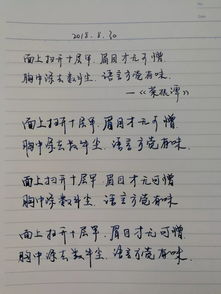 2018.8.30
面上扫开十层甲,眉目才无可憎
胸中涤去数斗尘,语言方觉有味.
—《菜根谭》
面上扫开十层甲,眉目才无可憎.
胸中涤去数斗尘,语言方觉有味.
面上扫开十层甲,眉目才无可憎
胸中涤去数斗尘,语言方觉有味
面上扫开十层甲,眉目才无可憎.
胸中涤去数斗尘,语言方觉有味.